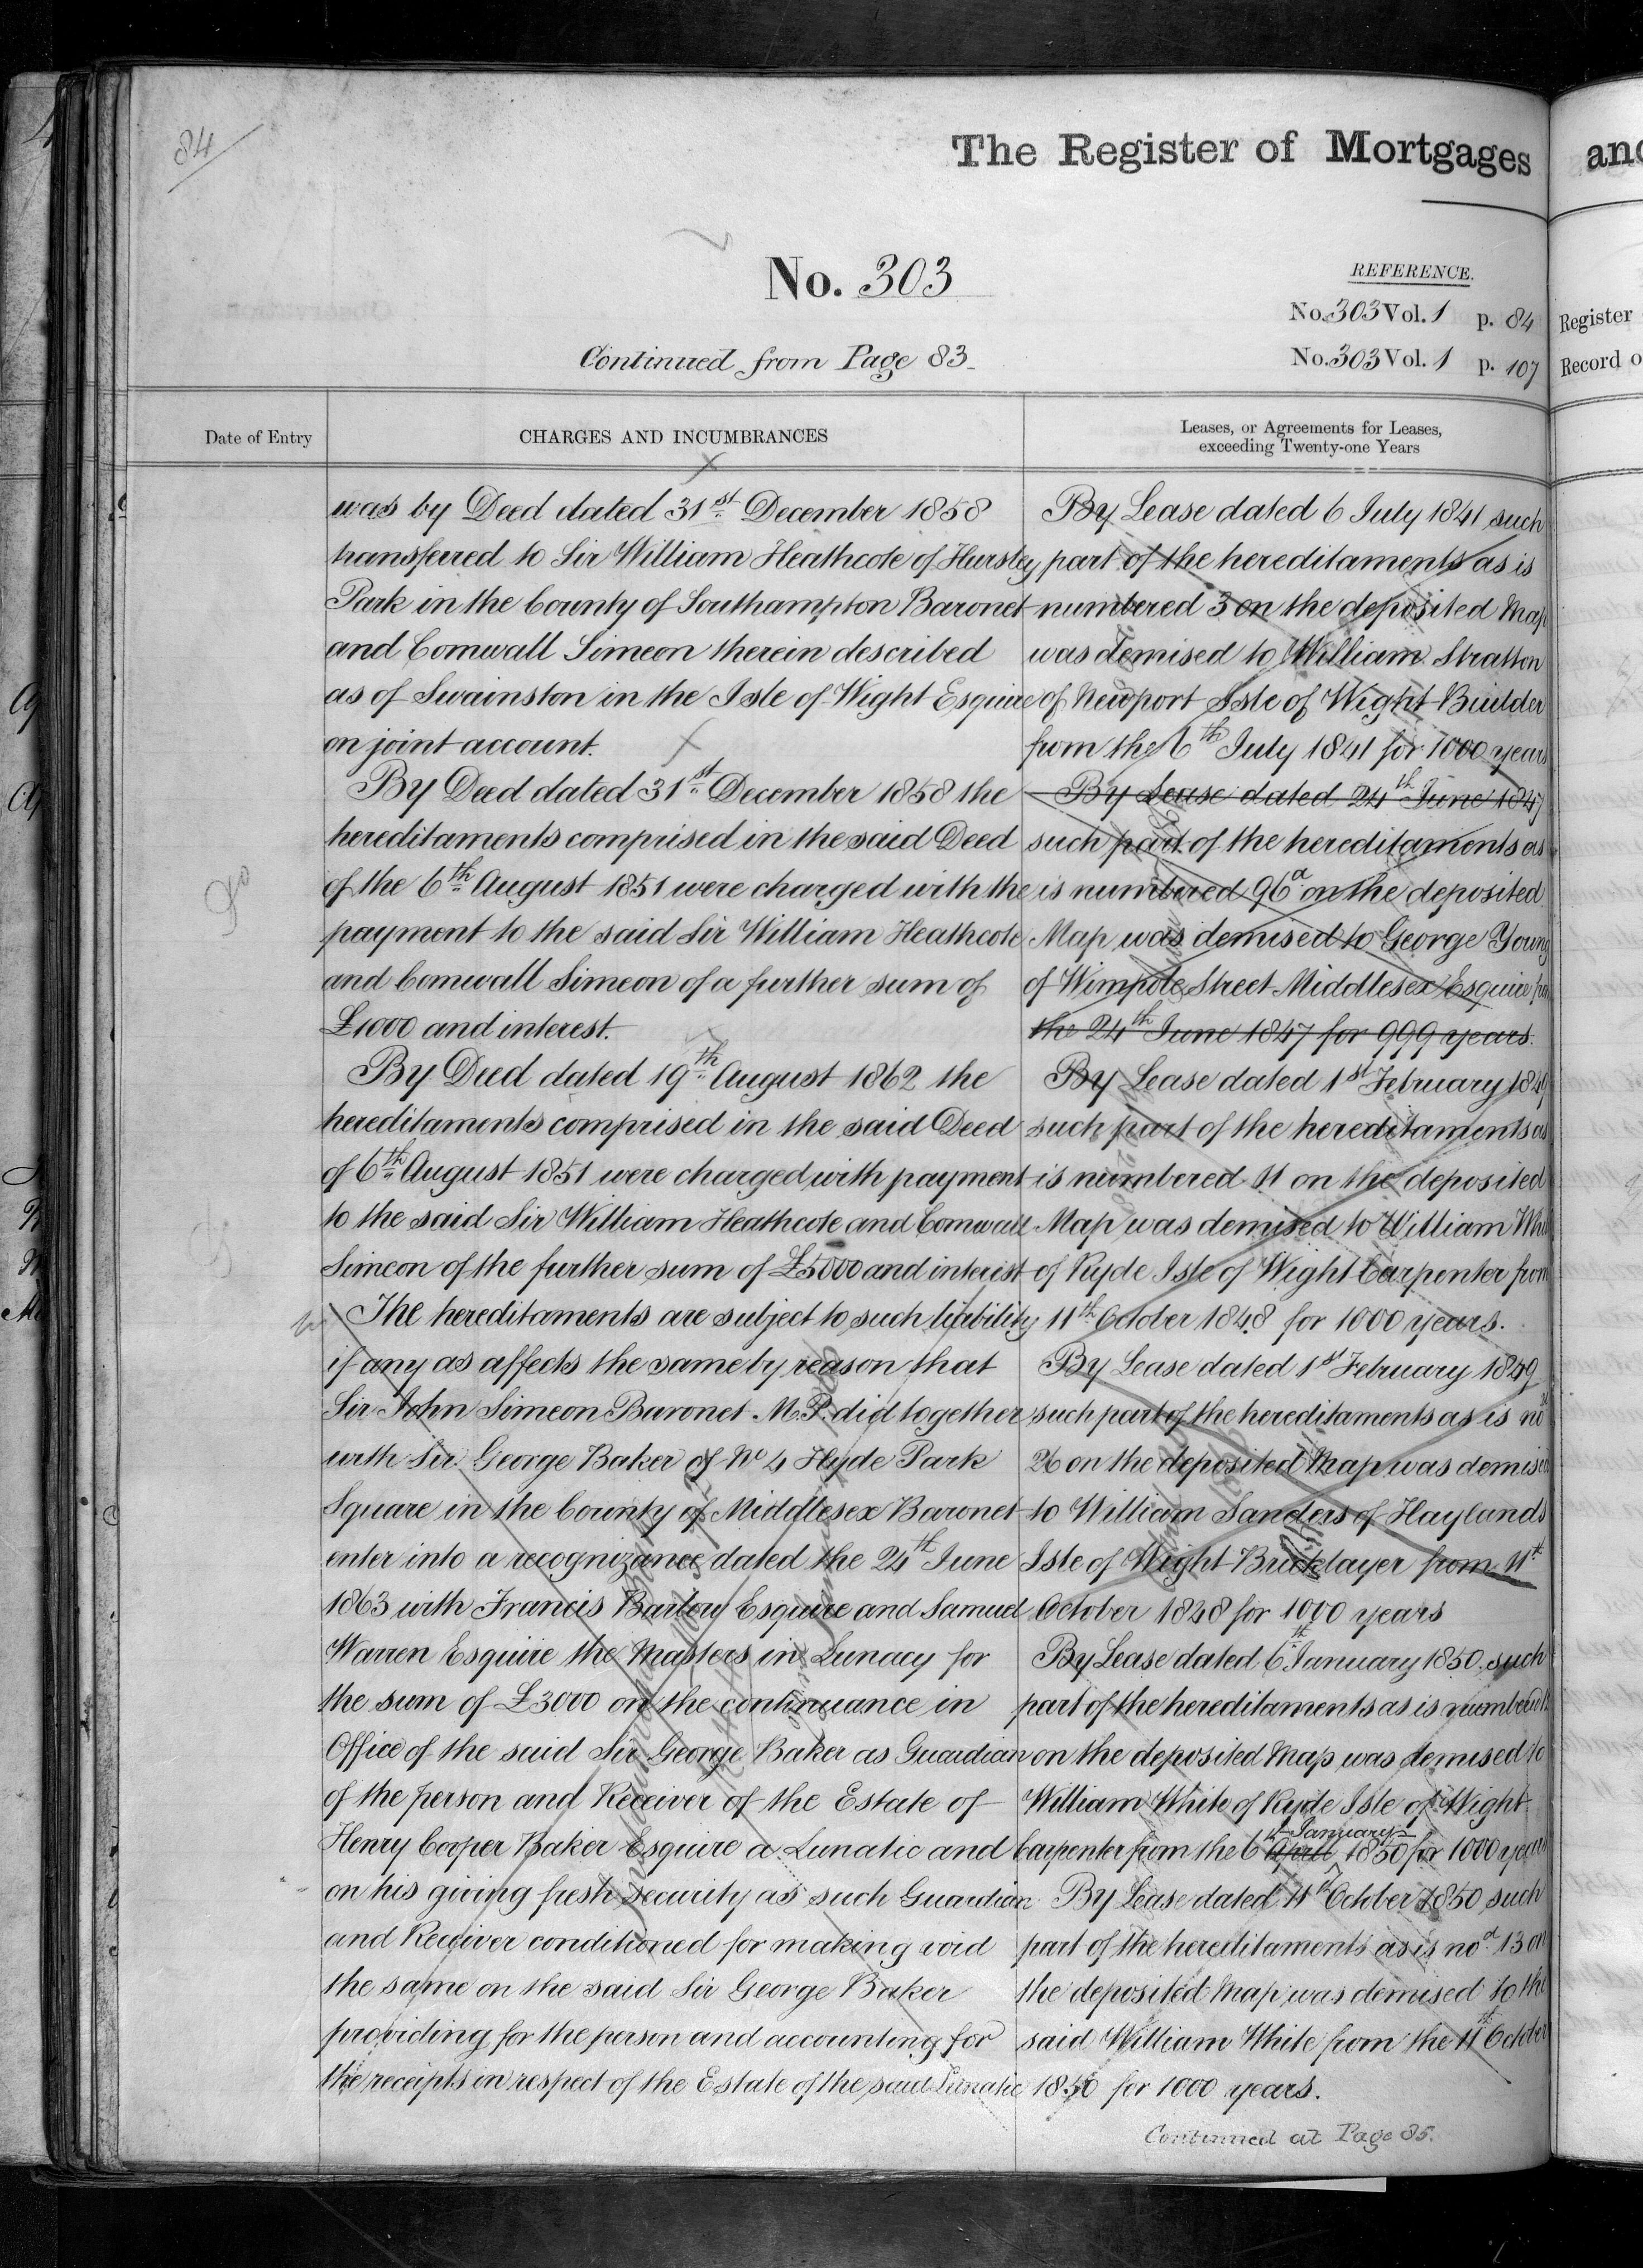 84
The Register of Mortgages
and
No. 303
REFERENCE.
No. 303 Vol. 1 p. 84
Register
Continued from Page 83
No. 303 Vol. 1 p. 107
Record o
Date of Entry
CHARGES AND INCUMBRANCES
Leases, or Agreements for Leases,
exceeding Twenty-one Years
was by Deed dated 31st December 1858
transferred to Sir William Heathcote of Hursley
Park in the County of Southampton Baronet
and Cornwall Simeon therein described
as of Swainston in the Isle of Wight Esquire
on joint account.
By Deed dated 31st December 1858 the
hereditaments comprised in the said Deed
of the 6th August 1851 were charged with the
payment to the said Sir William Heathcote
and Cornwall Simeon of a further sum of
£1000 and interest.
By Deed dated 19th August 1862 the
hereditaments comprised in the said Deed
of 6th August 1851 were charged with payment
to the said Sir William Heathcote and Cornwall
Simeon of the further sum of £5000 and interest
The hereditaments are subject to such liability
if any as affects the same by reason that
Sir John Simeon Baronet M.P. did together
with Sir George Baker of No 4 Hyde Park
Square in the County of Middlesex Baronet
enter into a recognizance dated the 24th June
1863 with Francis Barlow Esquire and Samuel
Warren Esquire the Masters in Lunacy for
the sum of £3000 on the continuance in
Office of the said Sir George Baker as Guardian
of the person and Receiver of the Estate of
Henry Cooper Baker Esquire a Lunatic and
on his giving fresh security as such Guardian
and Receiver conditioned for making void
the same on the said Sir George Baker
providing for the person and accounting for
the receipts in respect of the Estate of the said Lunatic
By Lease dated 6 July 1841 such
part of the hereditaments as is
numbered 3 on the deposited Map
was demised to William Stratton
of Newport Isle of Wight Builder
from the 6th July 1841 for 1000 years
By Lease dated 24th June 1847
such part of the hereditaments as
is numbered 96a on the deposited
Map was demised to George Young
of Wimpole Street Middlesex Esquire
the 24th June 1847 for 999 years.
By Lease dated 1st February 1849
such part of the hereditaments as
is numbered 11 on the deposited
Map was demised to William
of Ryde Isle of Wight Carpenter from
11th October 1848 for 1000 years.
By Lease dated 1st February 1849
such part of the hereditaments as is nod
26 on the deposited Map was demised
to William Sanders of Haylands
Isle of Wight Bricklayer from 11th
October 1848 for 1000 years
By Lease dated 6th January 1850 such
part of the hereditaments as is numbered
on the deposited Map was demised to
William White of Ryde Isle of Wight
January
Carpenter from the 6 April 1850 for 1000 years
By Lease dated 11th October 1850 such
part of the hereditaments as is nod 13 on
the deposited Map was demised to the
said William White from the 11th October
1850 for 1000 years.
Continued at Page 85.